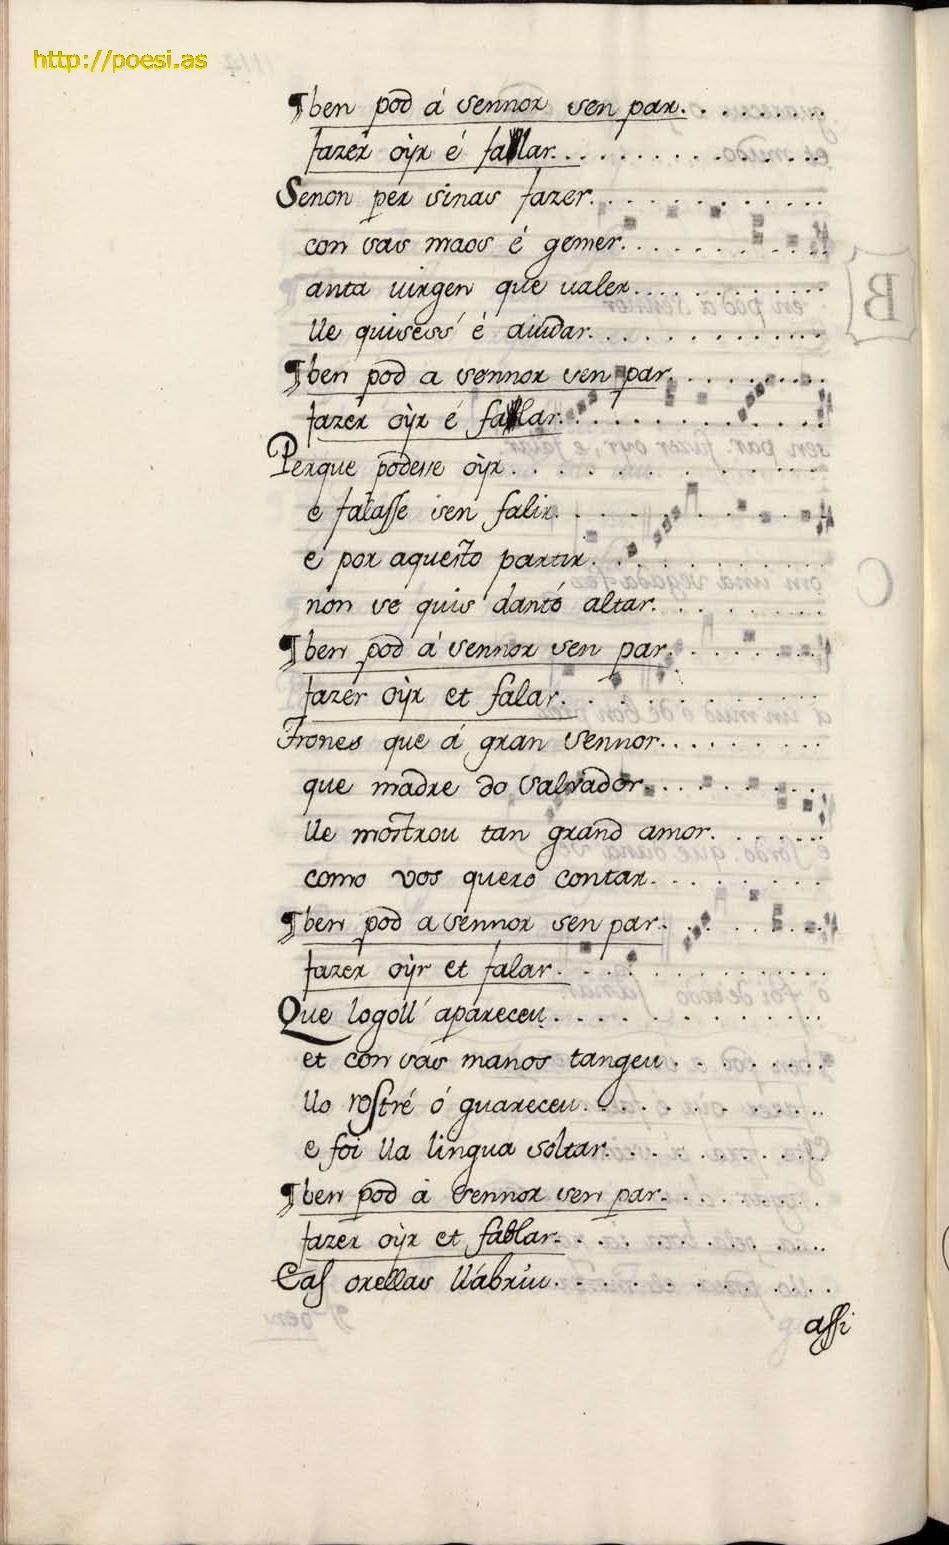 http://poesi.as
¶ben pod á sennor sen par.
fazer oÿr é fallar.
Senon per sinas fazer.
con sas maos é gemer.
anta uirgen que ualer.
lle quisess' é aiudar.
¶ben pod a sennor sen par.
fazer oÿr é fallar.
Perque podesse oÿr.
e falasse sen falir.
e por aquesto partir.
non se quis dantó altar.
¶ben pod á sennor sen par.
fazer oÿr et falar.
Frones que á gran sennor.
que madre do Salvador.
lle mostrou tan grand amor.
como vos quero contar.
¶ben pod a sennor sen par.
fazer oÿr et falar.
Que logoll' apareceu.
et con sas manos tangeu.
llo rostré ó guareceu.
e foi lla lingua soltar.
¶ben pod á sennor sen par.
fazer oÿr et fablar.
E as orellas ll'abriu.
assi